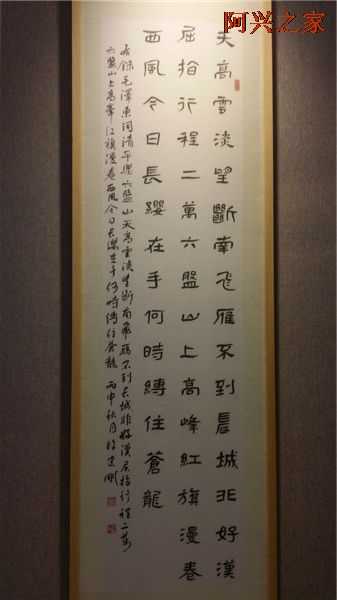 阿兴之家
天高雲淡望斷南飛雁不到長城非好漢
屈指行程二萬六盤山上高峰紅旗漫卷
西風今日長纓在手何時縛住蒼龍
錄毛澤東詞清平樂六盤山天高雲淡望斷南飛雁不到長城非好漢屈指行程二萬
六盤山上高峰紅旗漫卷西風今日長纓在手何時縛住蒼龍 丙申秋月